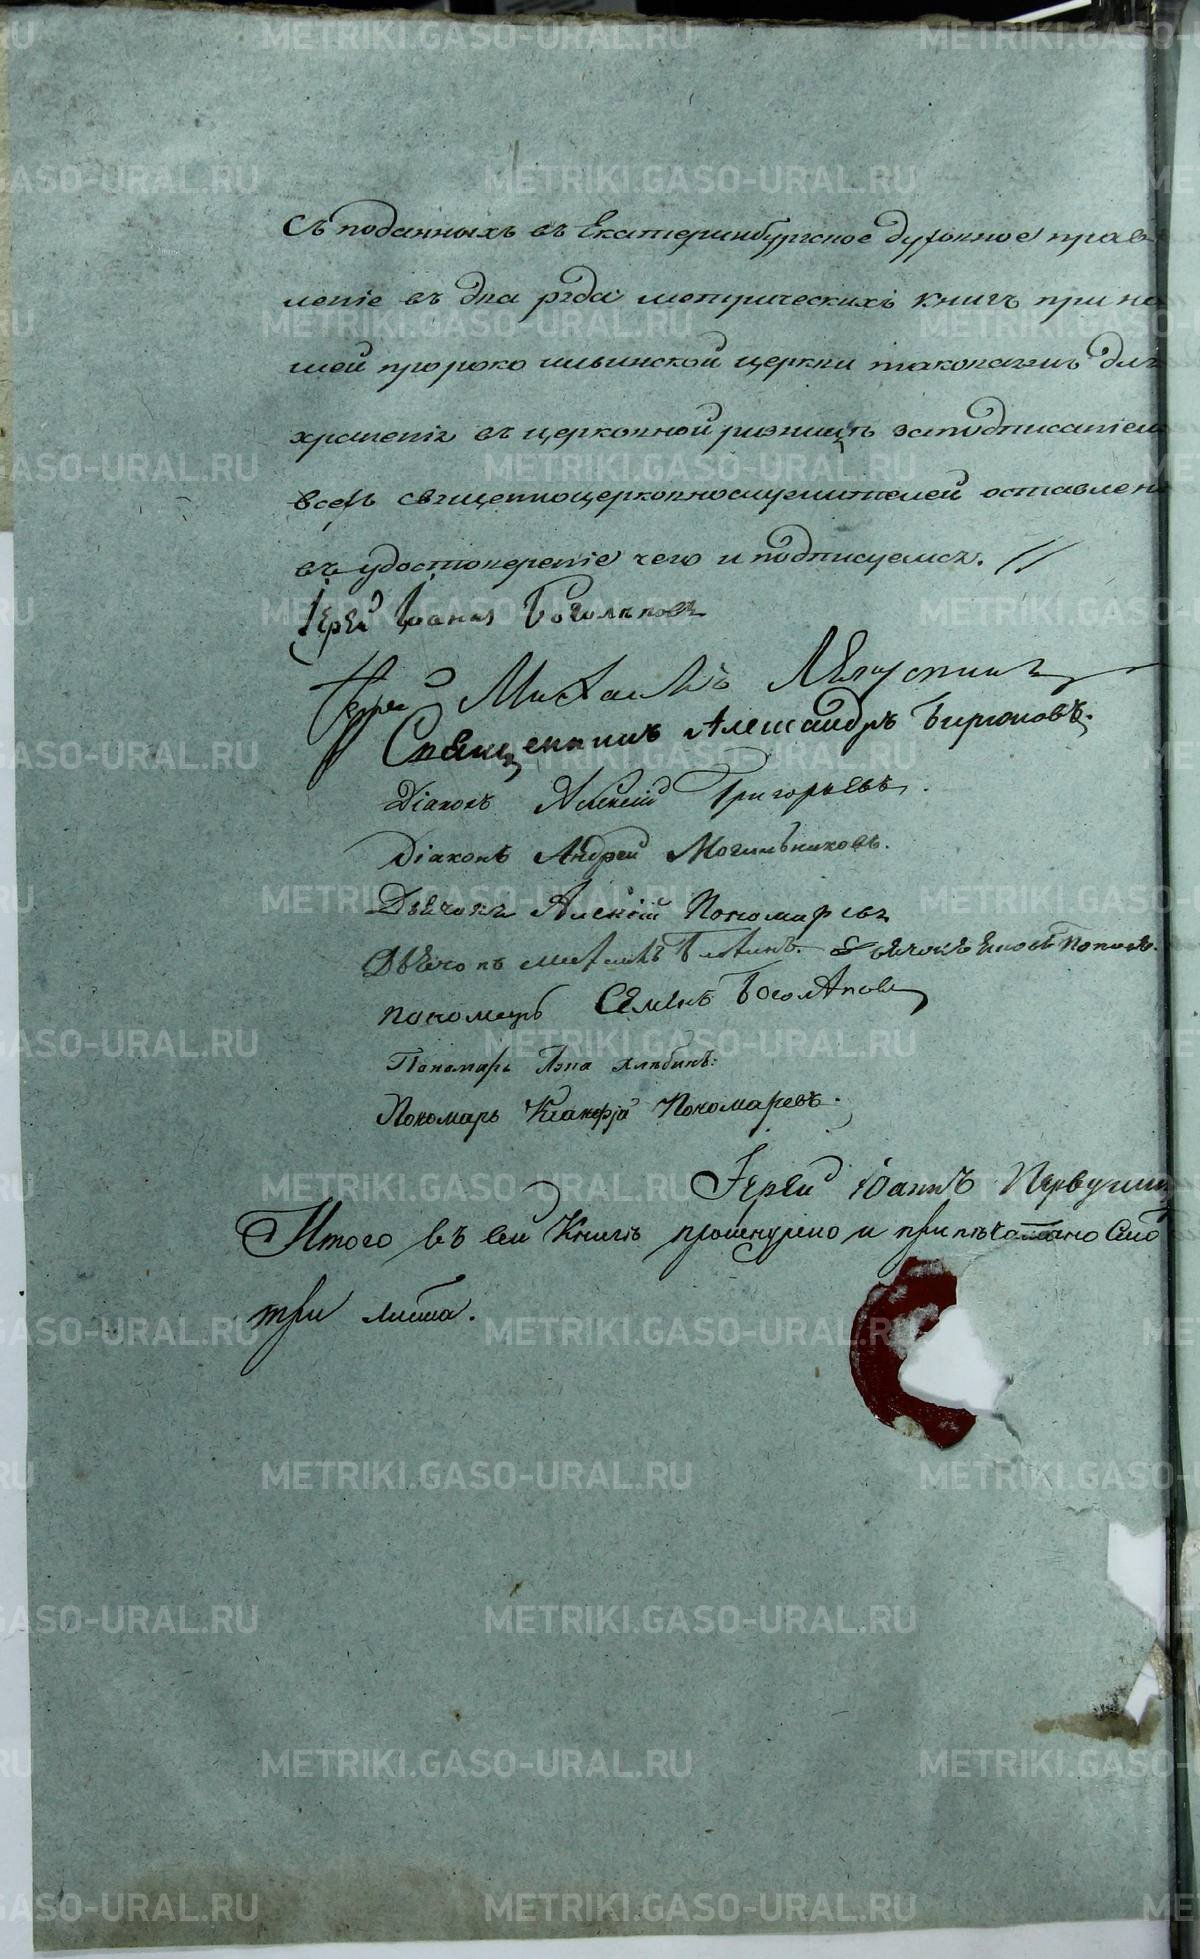 Съ поданныхъ въ Екатеринбургское духовное прав
леніе въ два года метрическихъ книгъ при на
шей пророко ильинской церкви таковаяжъ для
храненія въ церковной ризницѣ заподписаніем
всехъ священноцерковнослужителей оставлена
въ удостовереніе чего и подписуемся. //
Іерей Іоаннъ
Іерей Михаилъ
Священникъ Александръ Бирюковъ.
Діаконъ Алексій Григорьевъ.
Діаконъ Андрей Могильниковъ.
Дьячокъ Алексій Пономаревъ
Дьячокъ Михаилъ Дьячокъ Поповъ.
пономарь Семенъ Боголѣповъ
Пономарь Хлѣбинъ:
Пономарь Ксанфій Пономаревъ.
Іерей Іоаннъ Первушин
Итого въ сей Книгѣ прошнурено и припечатано Сто
три листа.
METRIKI.GASO-URAL.RU